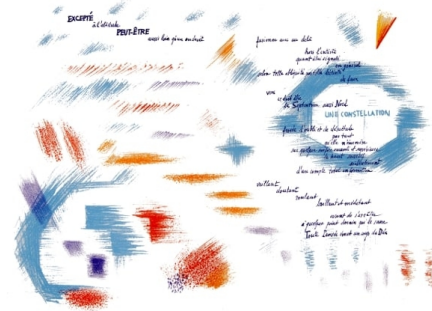 EXCEPTÉ
à l'altitude
PEUT-ÊTRE
aussi loin qu'un endroit
fusionne avec au delà
hors l'intérêt
quant à lui signalé
en général
selon telle obliquité par telle déclivité
de feux
vers
ce doit être
le Septentrion aussi Nord
UNE CONSTELLATION
froide d'oubli et de désuétude
pas tant
qu'elle n'énumère
sur quelque surface vacante et supérieure
le heurt successif
sidéralement
d'un compte total en formation
veillant
doutant
roulant
brillant et méditant
avant de s'arrêter
à quelque point dernier qui le sacre
Toute Pensée émet un Coup de Dés